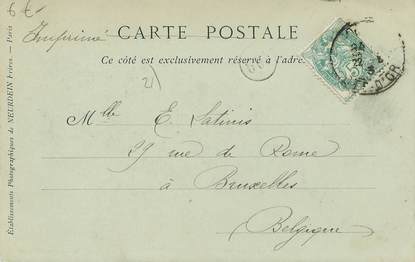 6 €
CARTE POSTALE
Imprimé
Ce côté est exclusivement réservé à l'adre
Mlle E. Satinis
29 rue de Rome
à Bruxelles
Belgique
Établissements Photographiques de NEURDEIN Frères. — Paris
D'OR